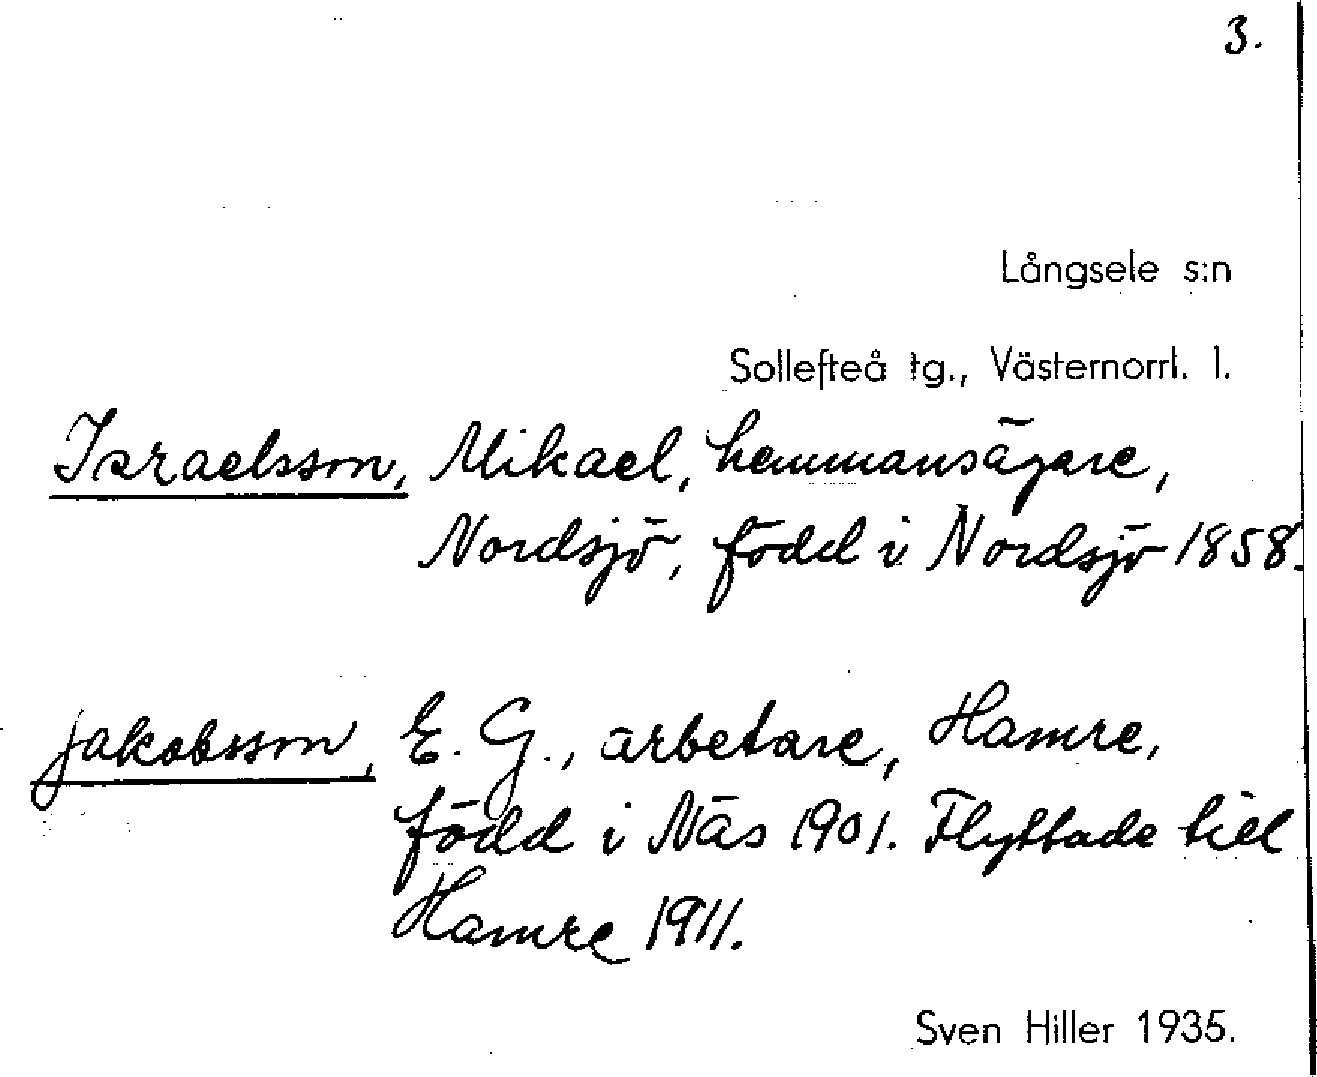 3.
Långsele s:n
Sollefteå tg., Västernorrl. l.
Israelsson, Mikael, hemmansägare,
Nordsjö, född i Nordsjö 1858.
Jakobsson, E. G., arbetare, Hamre,
född i Näs 1901. Flyttade till
Hamre 1911.
Sven Hiller 1935.